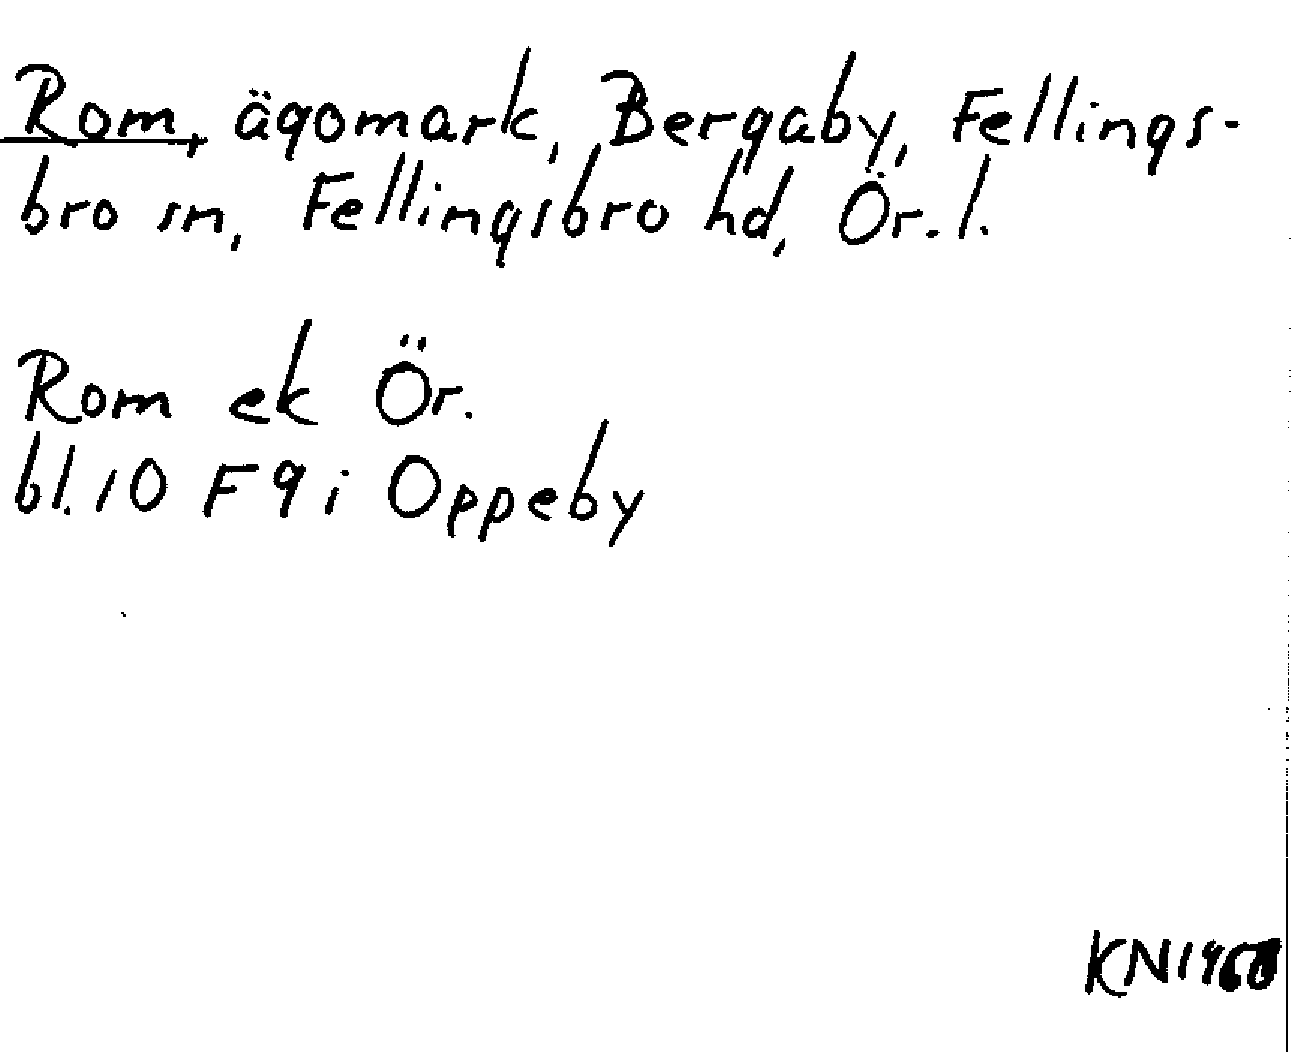 Rom, ägomark, Bergaby, Fellings-
bro sn, Fellingsbro hd, Ör. l.
Rom ek Ör.
bl. 10 F 9 i Oppeby